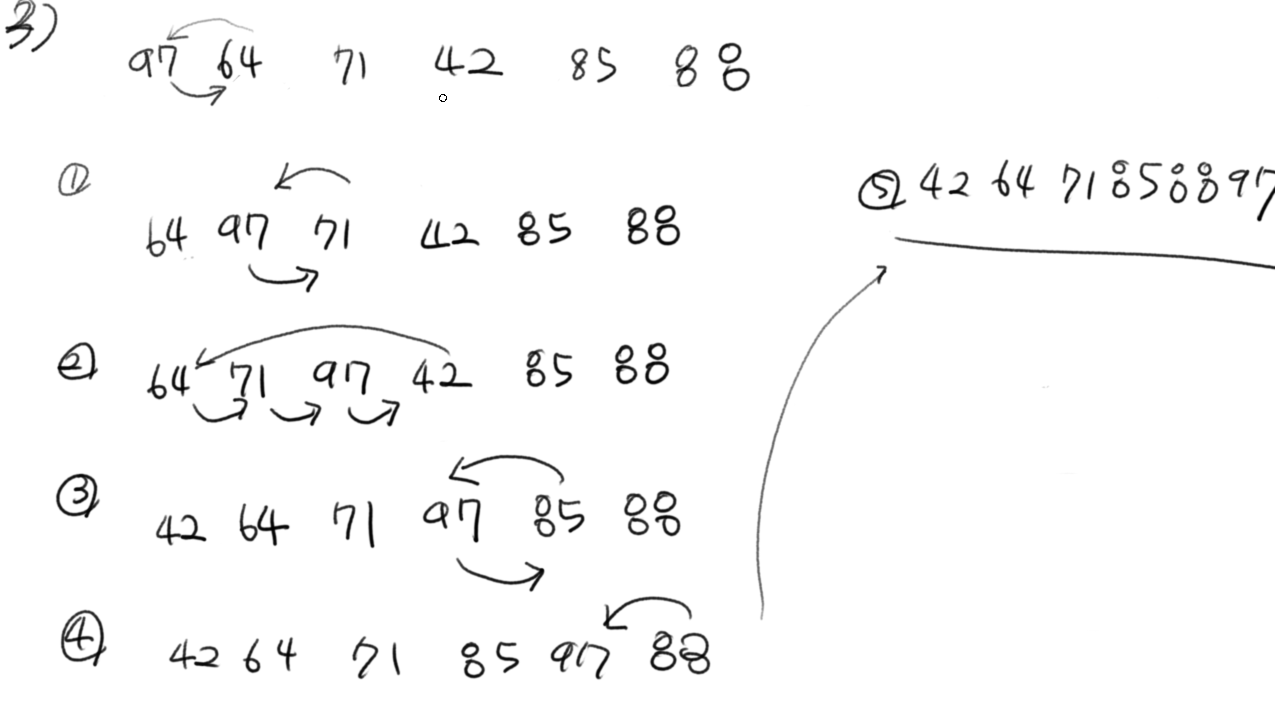 3)
97 64 71 42 85 88
① 64 97 71 42 85 88
② 64 71 97 42 85 88
③ 42 64 71 97 85 88
④ 42 64 71 85 97 88
⑤ 42 64 71 85 88 97